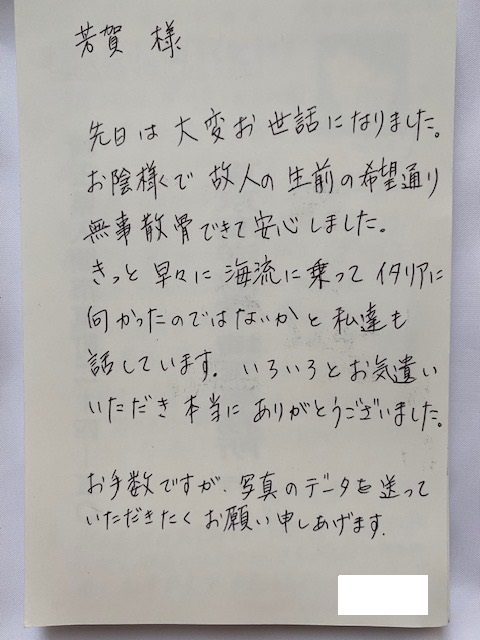 芳賀 様
先日は大変お世話になりました。
お陰様くで故人の生前の希望通り
無事散骨できて安心しました。
きっと早々に海流に乗ってイタリアに
向かったのではないかと私達も
話しています。いろいろとお気遣い
いただき本当にありがとうございました。
お手数ですが、写真のデータを送って
いただきたくお願い申しあげます.